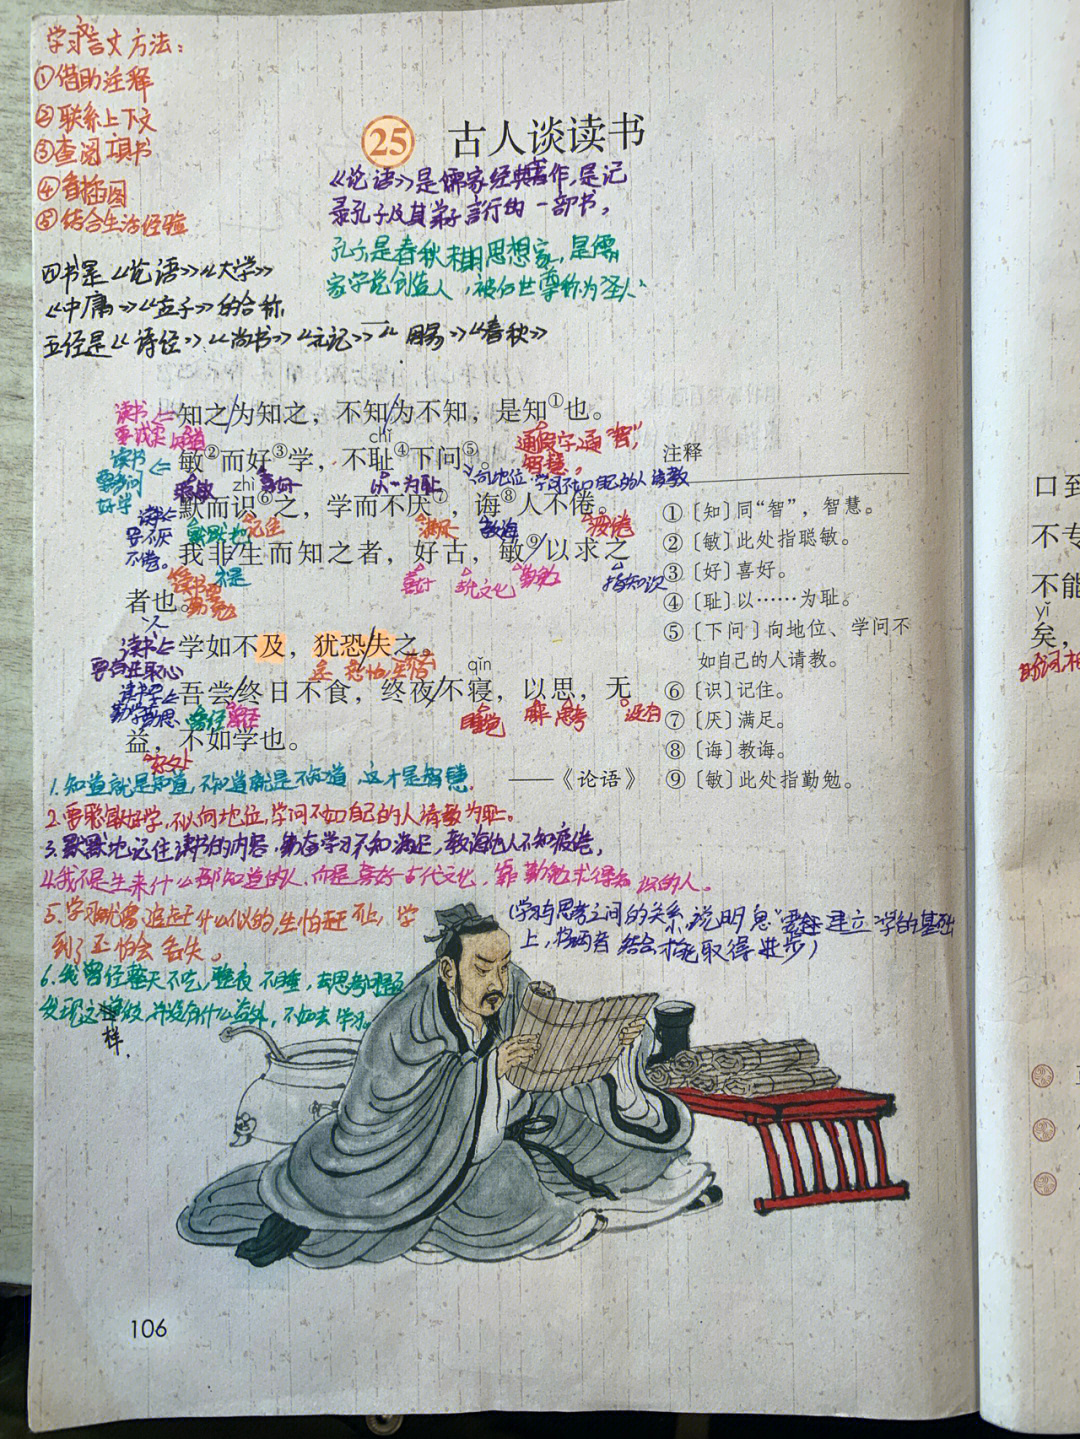 学习言文方法：
①借助注释
②联系上下文
③查阅工具书
④看插图
⑤结合生活经验
25 古人谈读书
《论语》是儒家经典著作，是记
录孔子及其弟子言行的一部书，
孔子是春秋末期思想家，是儒
家学说创造人，被后世尊称为圣人
四书是《论语》《大学》
《中庸》《孟子》的合称
五经是《诗经》《尚书》《礼记》《周易》《春秋》
读书要诚实
知之为知之，不知为不知，是知①也。
知道
通假字，通“智”，
智慧。
读书要多问好学
chǐ
敏②而好③学，不耻④下问⑤。
聪敏 喜好 以…为耻 向地位、学问不如自己的人请教
读书要不厌不倦。
zhì
默而识⑥之，学而不厌⑦，诲⑧人不倦。
默默地 记住 满足 教诲 疲倦
我非生而知之者，好古，敏⑨以求之
不是 喜好 古代文化 勤勉 指知识
者也。
读书要勤勉
人
读书要有进取心
学如不及，犹恐失之。
还 恐怕 失去
读书要勤学勤思
qǐn
吾尝终日不食，终夜不寝，以思，无
曾经 整天 睡觉 来 思考 没有
益，不如学也。
好处
——《论语》
注释
①〔知〕同“智”，智慧。
②〔敏〕此处指聪敏。
③〔好〕喜好。
④〔耻〕以……为耻。
⑤〔下问〕向地位、学问不
如自己的人请教。
⑥〔识〕记住。
⑦〔厌〕满足。
⑧〔诲〕教诲。
⑨〔敏〕此处指勤勉。
1.知道就是知道，不知道就是不知道，这才是智慧.
2.要聪敏好学，不以向地位，学问不如自己的人请教为耻。
3.默默地记住读书的内容，勤奋学习不知满足，教诲他人不知疲倦，
4.我不是生来什么都知道的人，而是喜好古代文化，靠勤勉求得知识的人。
5.学习就像追赶什么似的，生怕赶不上，学
到了还怕会丢失。
6.我曾经整天不吃，整夜不睡，去思考问题
发现这样做，并没有什么益处，不如去学习。
（学习与思考之间的关系，说明“思”要在建立“学”的基础
上，将两者结合才能取得进步）
106
口到
不专
不能
yǐ
矣，
助词，相